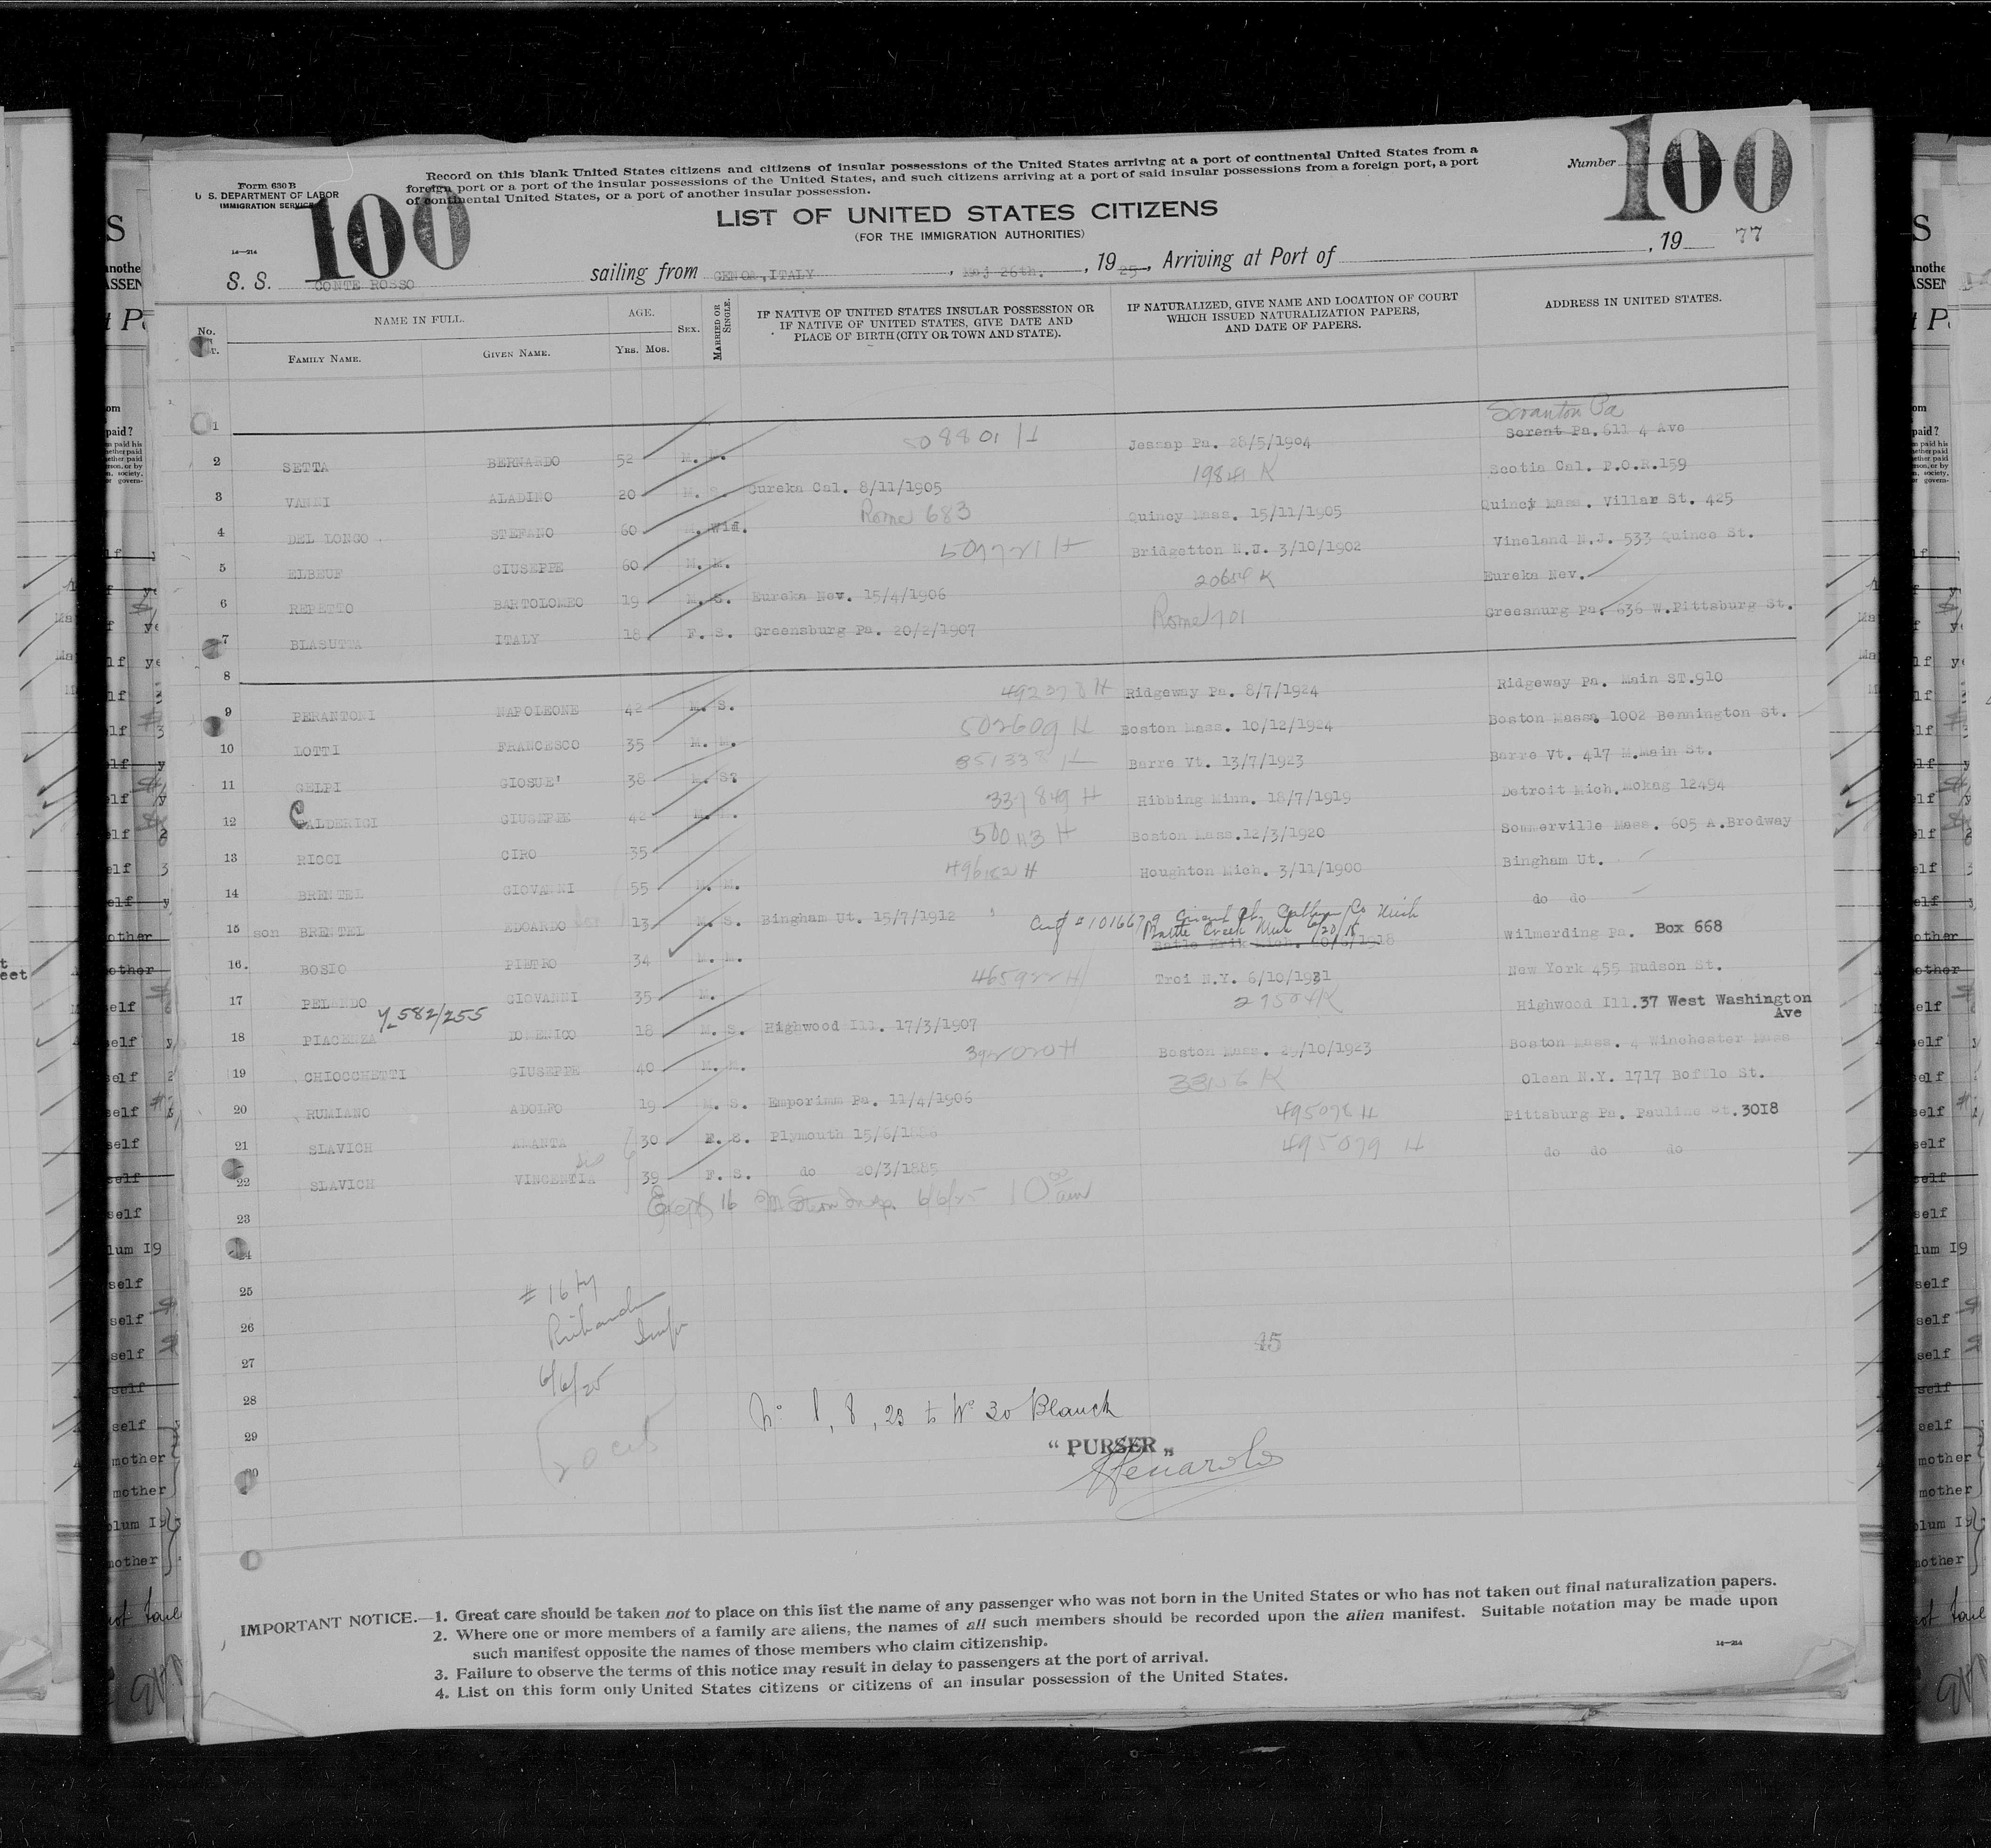 Form 630 B
U. S. DEPARTMENT OF LABOR
IMMIGRATION SERVICE
100
Record on this blank United States citizens and citizens of insular possessions of the United States arriving at a port of continental United States from a
foreign port or a port of the insular possessions of the United States, and such citizens arriving at a port of said insular possessions from a foreign port, a port
of continental United States, or a port of another insular possession.
Number
100
LIST OF UNITED STATES CITIZENS
(FOR THE IMMIGRATION AUTHORITIES)
77
S. S. CONTE ROSSO sailing from GENOA, ITALY, Maj 26th., 1925, Arriving at Port of , 19
No.
NAME IN FULL.
FAMILY NAME.
GIVEN NAME.
AGE.
YRS. MOS.
SEX.
MARRIED OR SINGLE.
IF NATIVE OF UNITED STATES INSULAR POSSESSION OR
IF NATIVE OF UNITED STATES, GIVE DATE AND
PLACE OF BIRTH (CITY OR TOWN AND STATE).
IF NATURALIZED, GIVE NAME AND LOCATION OF COURT
WHICH ISSUED NATURALIZATION PAPERS,
AND DATE OF PAPERS.
ADDRESS IN UNITED STATES.
1
Scranton Pa
2 SETTA BERNARDO 52 M. M. 508801 H Jessup Pa. 28/5/1904 Serent Pa. 611 4 Ave
3 VANNI ALADINO 20 M. S. Eureka Cal. 8/11/1905 19841 K Scotia Cal. P.O.R.159
4 DEL LONGO STEFANO 60 M. Wid. Rome 683 Quincy Mass. 15/11/1905 Quincy Mass. Villar St. 425
5 ELBEUF GIUSEPPE 60 M. M. Bridgetton N.J. 3/10/1902 Vineland N.J. 533 Quince St.
6 REPETTO BARTOLOMEO 19 M. S. Eureka Nev. 15/4/1906 Eureka Nev.
7 BLASUTTA ITALY 18 F. S. Greensburg Pa. 20/2/1907 Rome 701 Greesnurg Pa. 636 W.Pittsburg St.
8
9 PERANTONI NAPOLEONE 42 M. S. 492378 H Ridgeway Pa. 8/7/1924 Ridgeway Pa. Main ST.910
10 LOTTI FRANCESCO 35 M. M. 502609 H Boston Mass. 10/12/1924 Boston Mass. 1002 Bennington St.
11 GELPI GIOSUE' 38 M. S? Barre Vt. 13/7/1923 Barre Vt. 417 M.Main St.
12 CALDERIGI GIUSEPPE 42 M. M. 337849 H Hibbing Minn. 18/7/1919 Detroit Mich. Mckag 12494
13 RICCI CIRO 35 500113 H Boston Mass.12/3/1920 Sommerville Mass. 605 A.Brodway
14 BRENTEL GIOVANNI 55 M. M. 496182 H Houghton Mich. 3/11/1900 Bingham Ut.
15 son BRENTEL EDOARDO 13 M. S. Bingham Ut. 15/7/1912 do do
Cert # 1016679 Circuit Ct Calhoun Co Mich
Battle Creek Mich 6/20/18
16. BOSIO PIETRO 34 M. M. Batle Krik Mich. Wilmerding Pa. Box 668
17 PELANDO GIOVANNI 35 M. 465922 H Troi N.Y. 6/10/1921 New York 455 Hudson St.
582/255
18 PIACENZA DOMENICO 18 M. S. Highwood Ill. 17/3/1907 27504 K Highwood Ill. 37 West Washington
Ave
19 CHIOCCHETTI GIUSEPPE 40 M. M. 392020 H Boston Mass. 29/10/1923 Boston Mass. 4 Winchester Mass
20 RUMIANO ADOLFO 19 M. S. Emporimm Pa. 11/4/1906 Olean N.Y. 1717 Boffalo St.
21 SLAVICH AMANTA 30 F. S. Plymouth 495078 H Pittsburg Pa. Pauline St. 3018
22 SLAVICH VINCENTIA 39 F. S. do 20/3/1885 495079 H do do do
Except 16 Insp. 6/6/25 10 00 am
23
24
25
# 16 by
26
Insp
27
6/6/25
45
28
No 1, 8, 23 to No 30 Blanck
29
"PURSER"
30
IMPORTANT NOTICE.—1. Great care should be taken not to place on this list the name of any passenger who was not born in the United States or who has not taken out final naturalization papers.
2. Where one or more members of a family are aliens, the names of all such members should be recorded upon the alien manifest. Suitable notation may be made upon
such manifest opposite the names of those members who claim citizenship.
3. Failure to observe the terms of this notice may result in delay to passengers at the port of arrival.
4. List on this form only United States citizens or citizens of an insular possession of the United States.
14—214